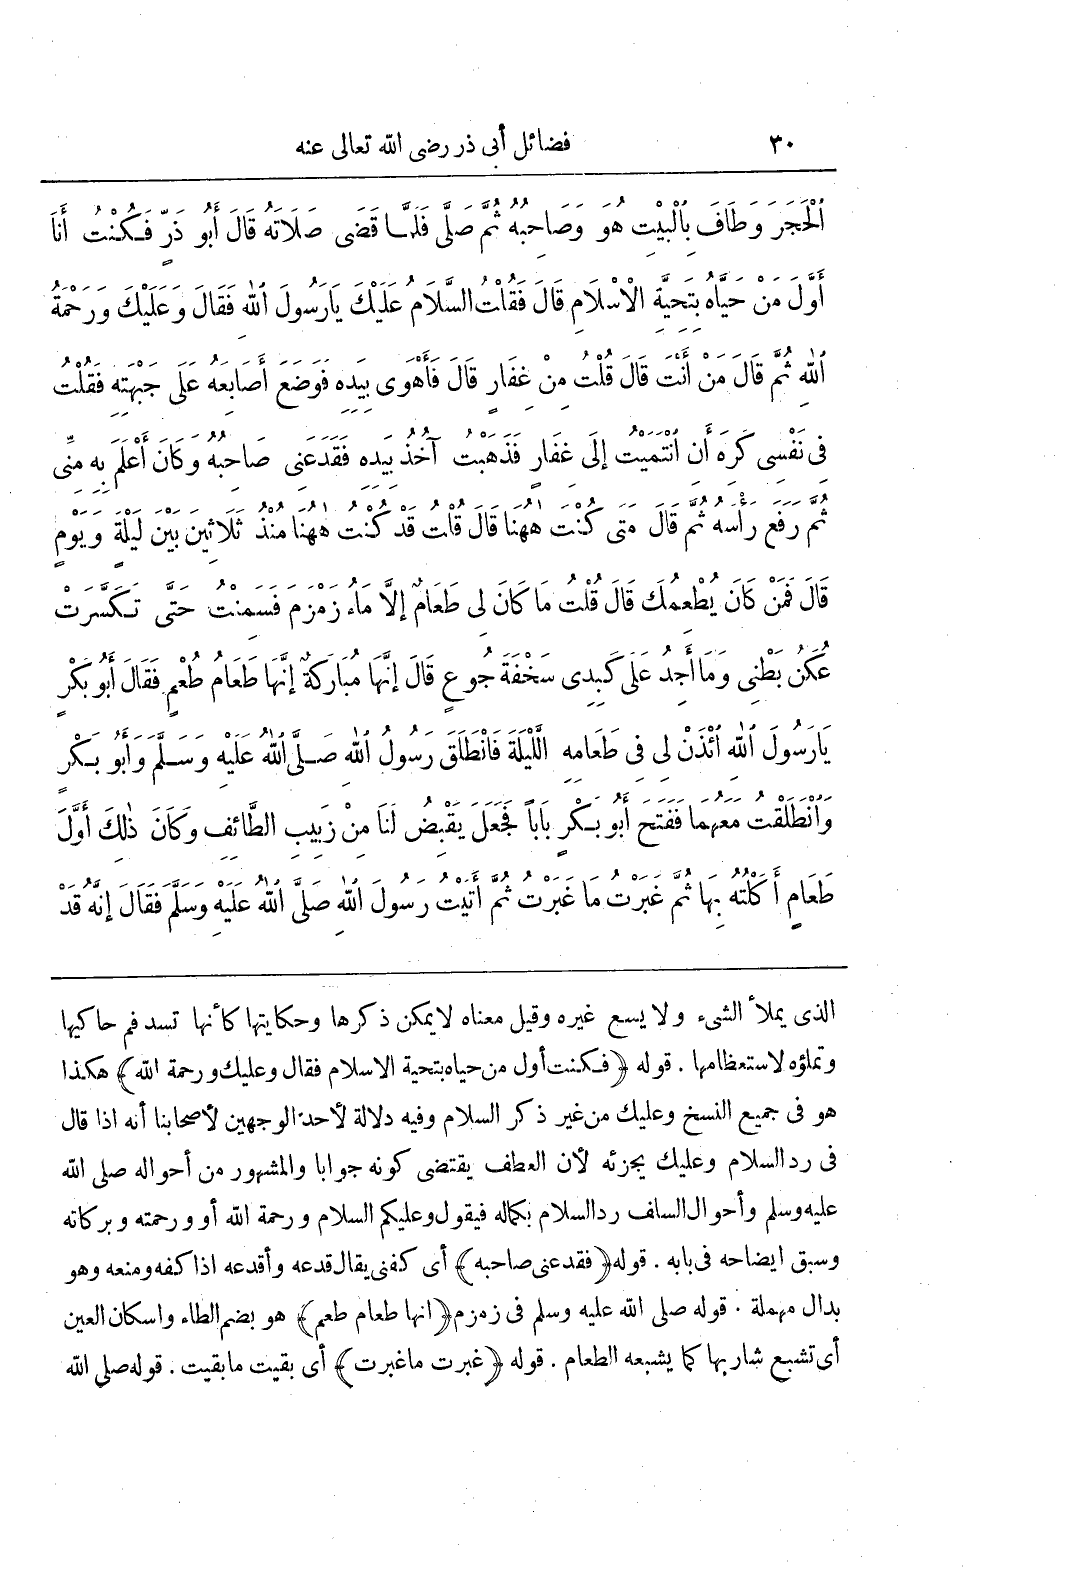 ٣٠ فضائل أبى ذر رضى الله تعالى عنه
ٱلْحَجَرَ وَطَافَ بِٱلْبَيْتِ هُوَ وَصَاحِبُهُ ثُمَّ صَلَّى فَلَمَّا قَضَى صَلَاتَهُ قَالَ أَبُو ذَرٍّ فَكُنْتُ أَنَا
أَوَّلَ مَنْ حَيَّاهُ بِتَحِيَّةِ الْاسْلَامِ قَالَ فَقُلْتُ السَّلَامُ عَلَيْكَ يَارَسُولَ ٱللهِ فَقَالَ وَعَلَيْكَ وَرَحْمَةُ
ٱللهِ ثُمَّ قَالَ مَنْ أَنْتَ قَالَ قُلْتُ مِنْ غِفَارٍ قَالَ فَأَهْوَى بِيَدِهِ فَوَضَعَ أَصَابِعَهُ عَلَى جَبْهَتِهِ فَقُلْتُ
فِى نَفْسِى كَرِهَ أَنِ ٱنْتَمَيْتُ إِلَى غِفَارٍ فَذَهَبْتُ آخُذُ بِيَدِهِ فَقَدَعَنِى صَاحِبُهُ وَكَانَ أَعْلَمَ بِهِ مِنِّى
ثُمَّ رَفَعَ رَأْسَهُ ثُمَّ قَالَ مَتَى كُنْتَ هٰهُنَا قَالَ قُلْتُ قَدْ كُنْتُ هٰهُنَا مُنْذُ ثَلَاثِينَ بَيْنَ لَيْلَةٍ وَيَوْمٍ
قَالَ فَمَنْ كَانَ يُطْعِمُكَ قَالَ قُلْتُ مَا كَانَ لِى طَعَامٌ إِلَّا مَاءُ زَمْزَمَ فَسَمِنْتُ حَتَّى تَكَسَّرَتْ
عُكَنُ بَطْنِى وَمَا أَجِدُ عَلَى كَبِدِى سَخْفَةَ جُوعٍ قَالَ إِنَّهَا مُبَارَكَةٌ إِنَّهَا طَعَامُ طُعْمٍ فَقَالَ أَبُو بَكْرٍ
يَارَسُولَ ٱللهِ ٱئْذَنْ لِى فِى طَعَامِهِ الَّلْيْلَةَ فَانْطَلَقَ رَسُولُ ٱللهِ صَلَّى ٱللهُ عَلَيْهِ وَسَلَّمَ وَأَبُو بَكْرٍ
وَٱنْطَلَقْتُ مَعَهُمَا فَفَتَحَ أَبُو بَكْرٍ بَابًا فَجَعَلَ يَقْبِضُ لَنَا مِنْ زَبِيبِ الطَّائِفِ وَكَانَ ذٰلِكَ أَوَّلَ
طَعَامٍ أَكَلْتُهُ بِهَا ثُمَّ غَبَرْتُ مَا غَبَرْتُ ثُمَّ أَتَيْتُ رَسُولَ ٱللهِ صَلَّى ٱللهُ عَلَيْهِ وَسَلَّمَ فَقَالَ إِنَّهُ قَدْ
الذى يملأ الشىء ولا يسع غيره وقيل معناه لايمكن ذكرها وحكايتها كأنها تسد فم حاكيها
وتملؤه لاستعظامها . قوله ﴿فكنت أول من حياه بتحية الاسلام فقال وعليك ورحمة الله﴾ هكذا
هو فى جميع النسخ وعليك من غير ذكر السلام وفيه دلالة لأحد الوجهين لأصحابنا أنه اذا قال
فى رد السلام وعليك يجزئه لأن العطف يقتضى كونه جوابا والمشهور من أحواله صلى الله
عليه وسلم وأحوال السلف رد السلام بكماله فيقول وعليكم السلام ورحمة الله أو ورحمته وبركاته
وسبق ايضاحه فى بابه . قوله ﴿فقدعنى صاحبه﴾ أى كفنى يقال قدعه وأقدعه اذا كفه ومنعه وهو
بدال مهملة . قوله صلى الله عليه وسلم فى زمزم ﴿انها طعام طعم﴾ هو بضم الطاء واسكان العين
أى تشبع شاربها كما يشبعه الطعام . قوله ﴿غبرت ماغبرت﴾ أى بقيت مابقيت . قوله صلى الله